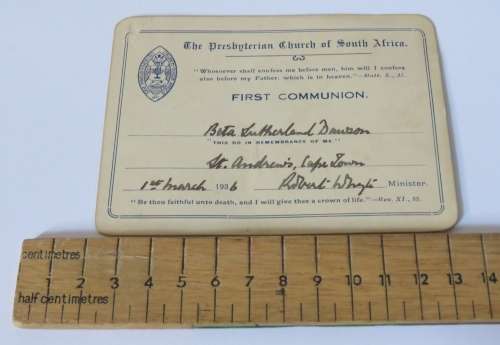 The Presbyterian Church of South Africa.
"Whosoever shall confess me before men, him will I confess
also before my Father, which is in heaven."—Matt. X., 32.
FIRST COMMUNION.
Beta Sutherland Dawson
"THIS DO IN REMEMBRANCE OF ME"
St. Andrew's, Cape Town
1st March 1936 Robert Whyte Minister.
"Be thou faithful unto death, and I will give thee a crown of life."—Rev.
centimetres
1 2 3 4 5 6 7 8 9 10 11 12 13 14
half centimetres